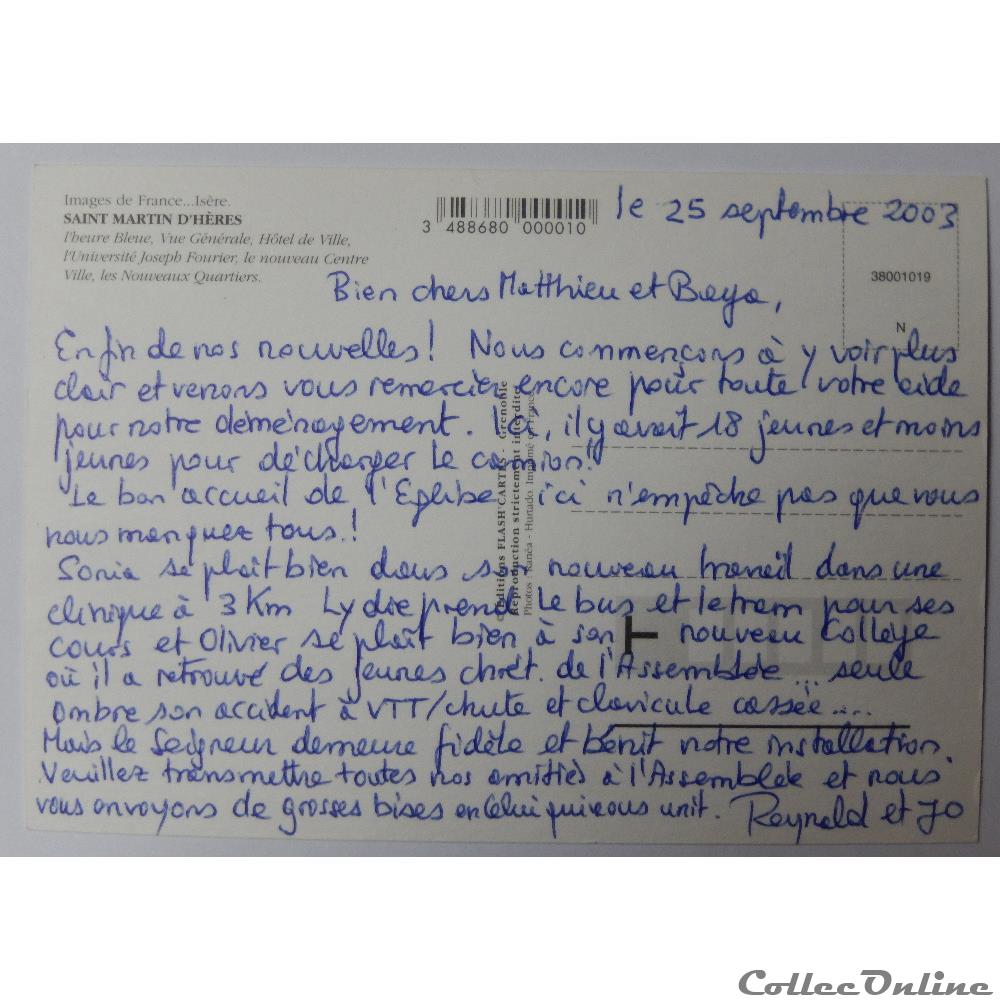 Images de France...Isère.
SAINT MARTIN D'HÈRES
l'heure Bleue, Vue Générale, Hôtel de Ville,
l'Université Joseph Fourier, le nouveau Centre
Ville, les Nouveaux Quartiers.
3 488680 000010
le 25 septembre 2003
38001019
N
Bien chers Matthieu et Baya,
Enfin de nos nouvelles! Nous commençons à y voir plus
clair et venons vous remercier encore pour toute votre aide
pour notre déménagement. Ici, il y avait 18 jeunes et moins
jeunes pour décharger le camion!
Le bon accueil de l'Eglise ici n'empêche pas que vous
nous manquez tous!
Sonia se plaît bien dans son nouveau travail dans une
clinique à 3 Km Lydie prend le bus et le tram pour ses
cours et Olivier se plaît bien à son nouveau Collège
où il a retrouvé des jeunes chrét. de l'Assemblée... seule
ombre son accident à VTT/chute et clavicule cassée....
Mais le Seigneur demeure fidèle et bénit notre installation.
Veuillez transmettre toutes nos amitiés à l'Assemblée et nous
vous envoyons de grosses bises en Celui qui nous unit. Reynald et JO
Editions FLASH'CARTES - Grenoble
Reproduction strictement interdite
Photos : Kanéa - Hurtado. Imprimé en France
CollecOnline